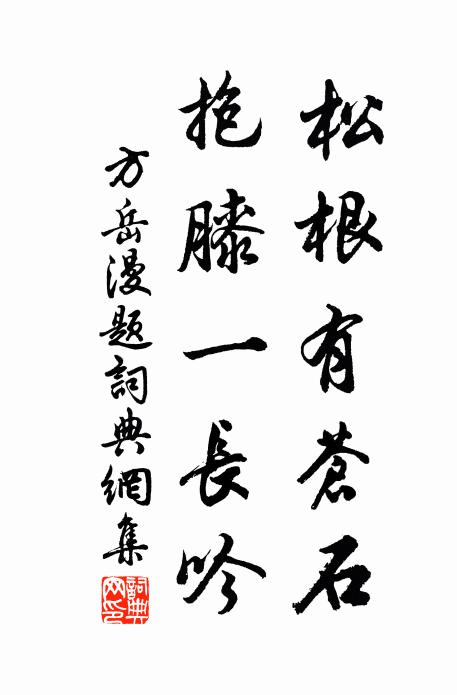 松根有蒼石
抱膝一長吟
方岳漫題詞典網集
詞典網印